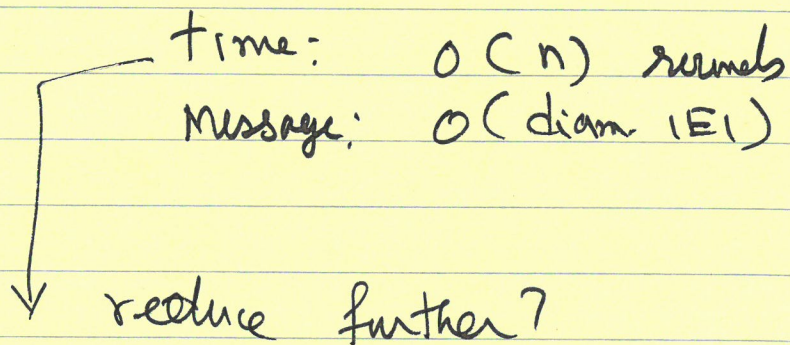 Time: O(n) rounds
Message: O(diam. |E|)
reduce further?